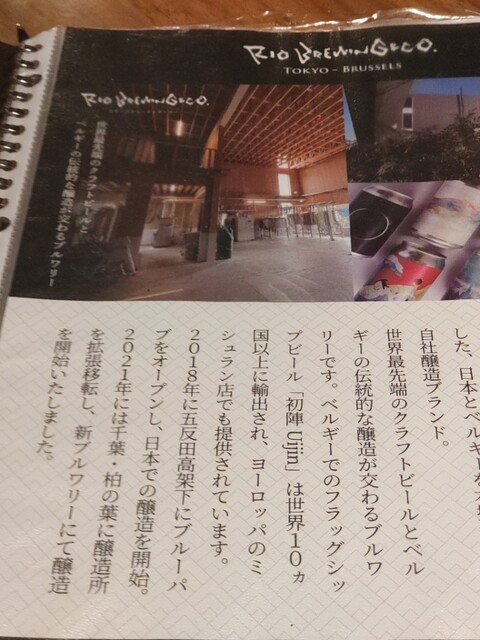 RIO BREWING&CO.
TOKYO – BRUSSELS
RIO BREWING&CO.
世界最先端のクラフトビールと
ベルギーの伝統的な醸造が交わるブルワリー
した、日本とベルギーを
自社醸造ブランド。
世界最先端のクラフトビールとベル
ギーの伝統的な醸造が交わるブルワ
リーです。ベルギーでのフラッグシッ
プビール「初陣 Ujin」は世界10ヵ
国以上に輸出され、ヨーロッパのミ
シュラン店でも提供されています。
2018年に五反田高架下にブルーパ
ブをオープンし、日本での醸造を開始。
2021年には千葉・柏の葉に醸造所
を拡張移転し、新ブルワリーにて醸造
を開始いたしました。